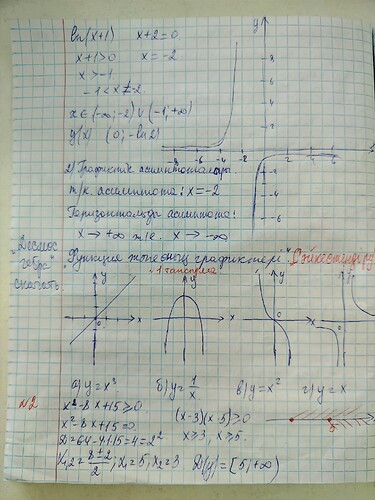 ln(x+1)   x+2=0
x+1>0   x=-2
x>-1
-1<x≠-2
x∈(-∞;-2)∪(-1;+∞)
y(x) (0;-ln2)
2) Графиктік асимптоталары
т/к. асимптота: x=-2
Горизонтальды асимптота:
x→+∞ x→-∞
y
8
6
4
2
-8 -6 -4 -2 2 4 6 x
-2
-4
-6
"Десмос
скачать
"Функция және оның графиктері"
1 тапсырма
y x 0
y x
y x
y
0
а) y=x³   б) y=1/x   в) y=x²   г) y=x
№2
x²-8x+15≥0.   (x-3)(x-5)≥0
x²-8x+15=0   x≥3, x≥5.
D=64-4·15=4=2²
x₁,₂=8±2/2; x₁=5, x₂=3   D(y)=[5;+∞)